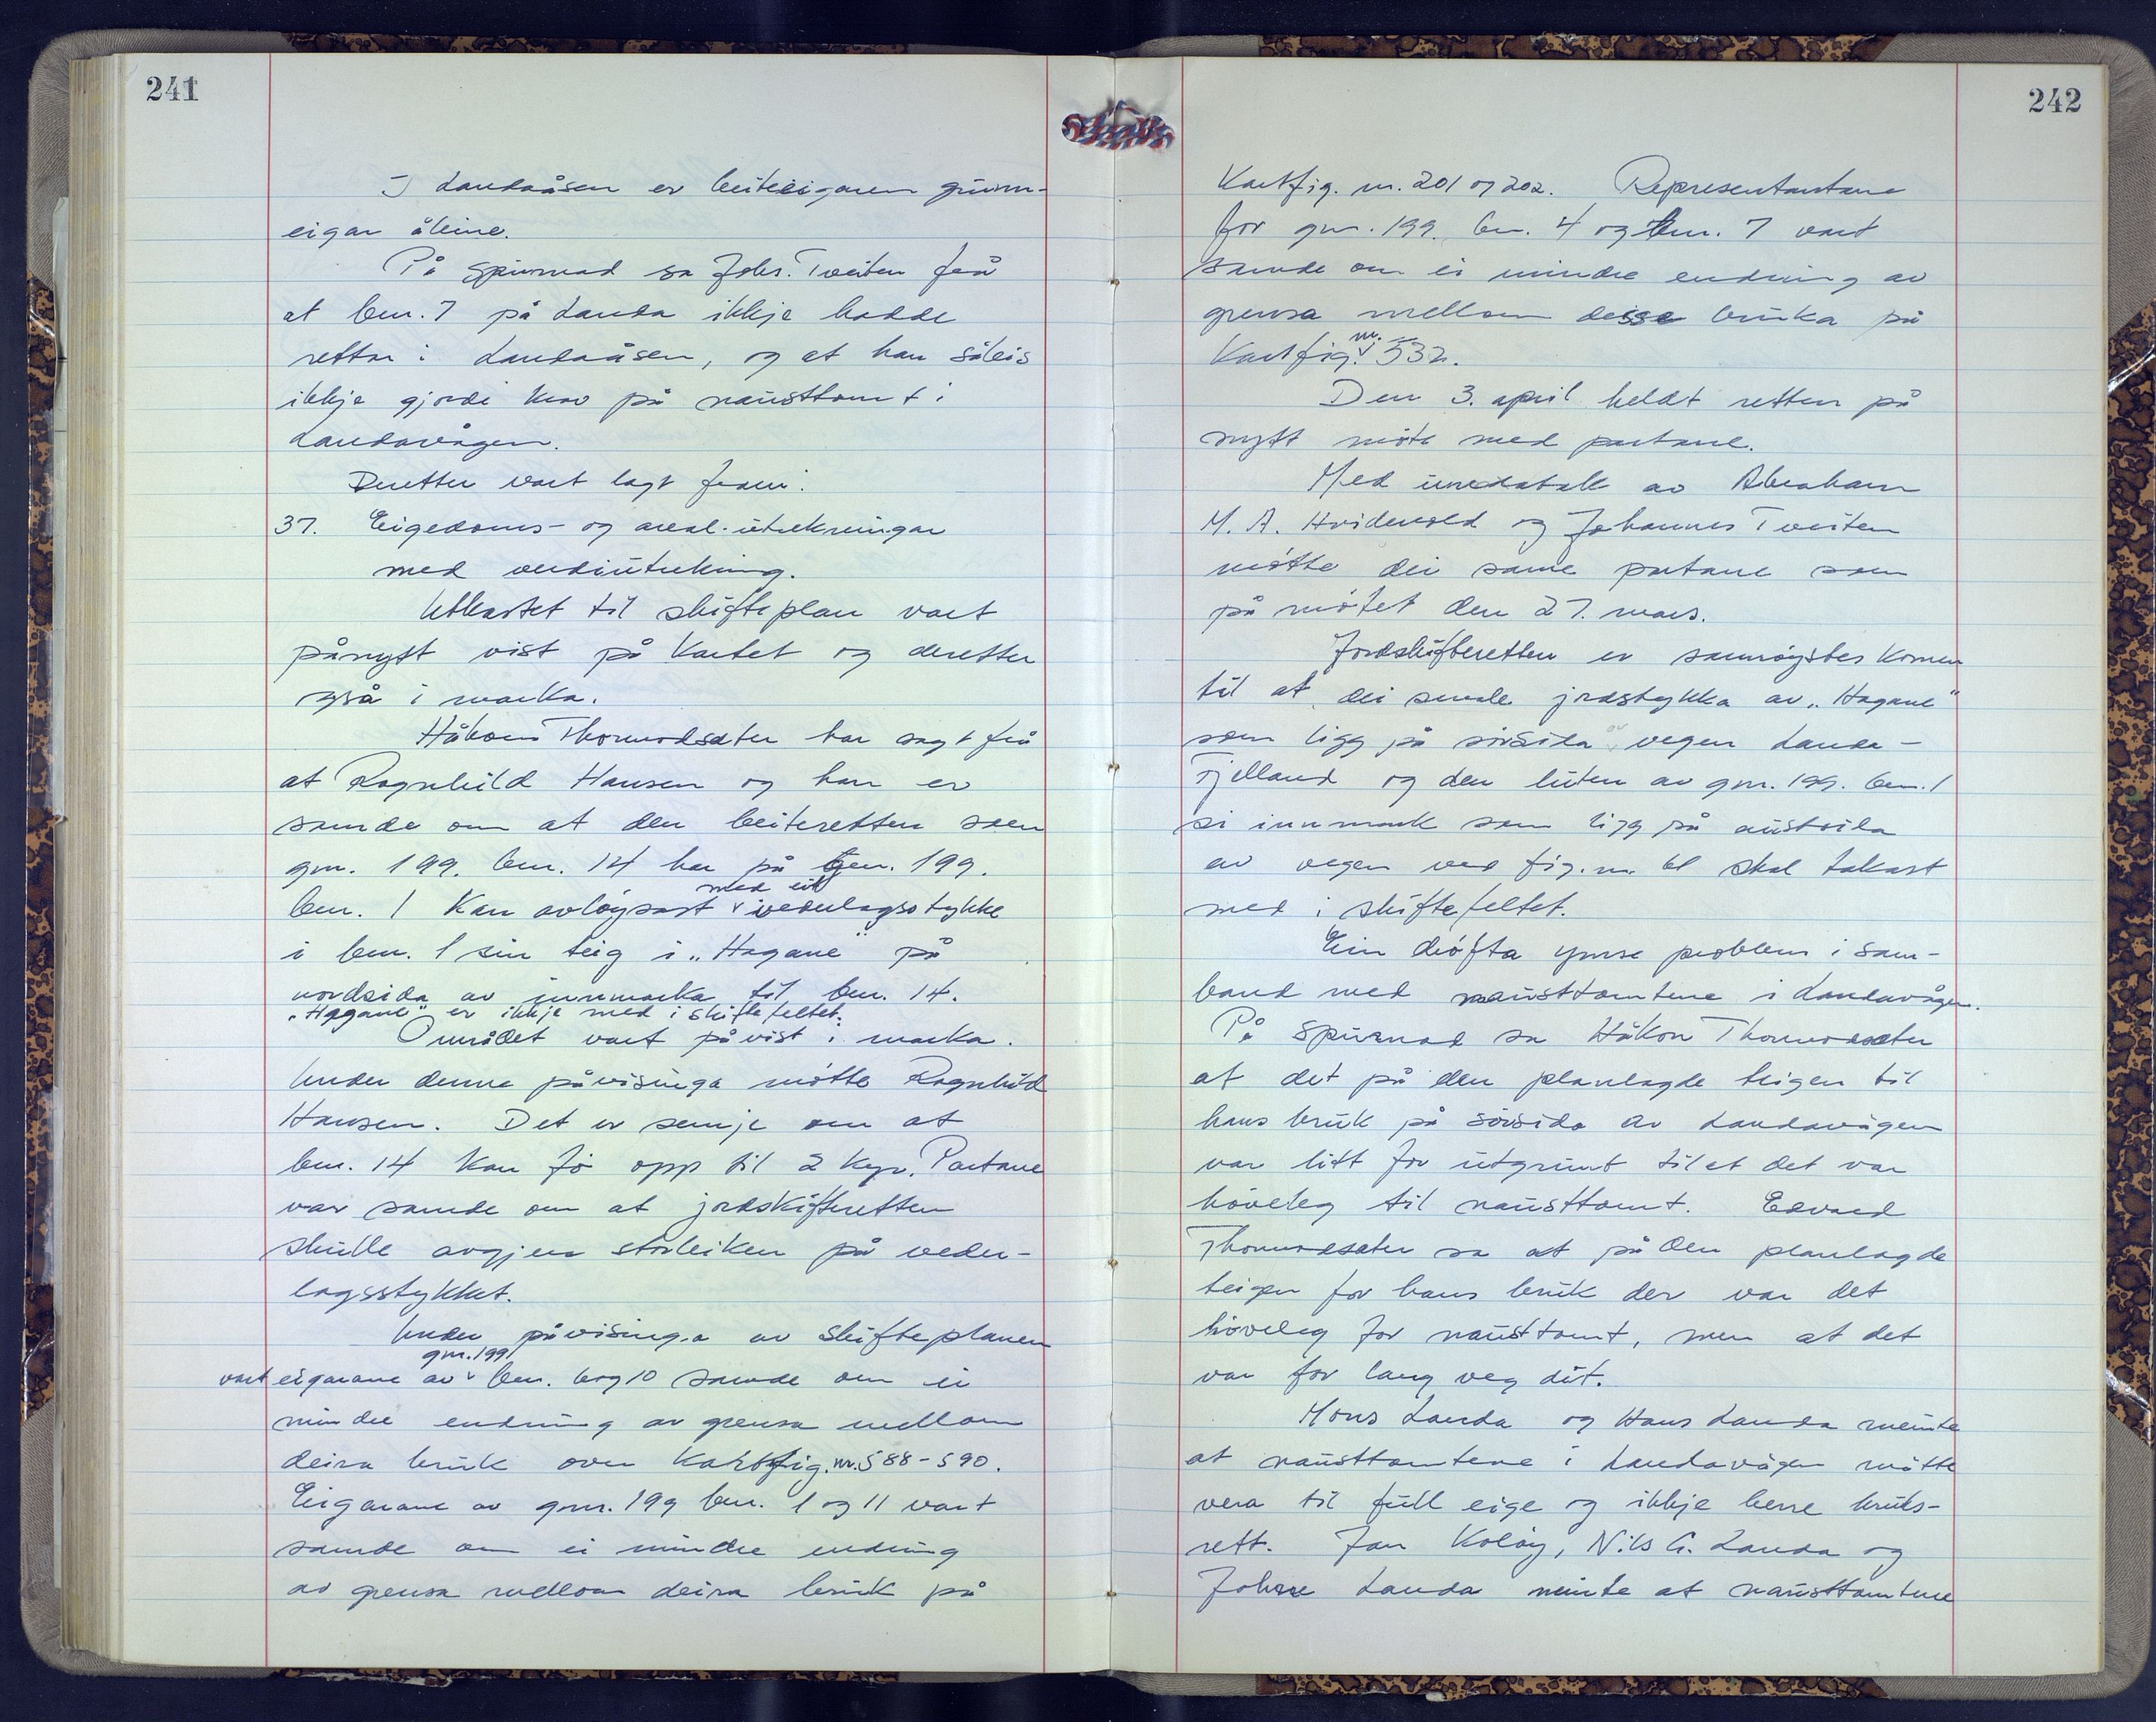 241
I Landaåsen er beiteeigaren grunn-
eigar åleine.
På spurnad sa Johs. Tveiten frå
at bnr. 7 på Landa ikkje hadde
rettar i Landaåsen, og at han såleis
ikkje gjorde krav på nausttomt i
Landavågen.
Deretter vart lagt fram:
37. Eigedoms- og areal-utrekningar
med verdiutrekning.
Utkastet til skifteplan vart
pånytt vist på kartet og deretter
også i marka.
Håkon Thormodsæter har sagt frå
at Ragnhild Hansen og han er
samde om at den beiteretten som
gnr. 199. bnr. 14 har på gnr. 199.
bnr. 1 kan avløysast med eit vederlagsstykke
i bnr. 1 sin teig i „Hagane" på
nordsida av innmarka til bnr. 14.
„Hagane" er ikkje med i skiftefeltet.
Området vart påvist i marka.
Under denne påvisinga møtte Ragnhild
Hansen. Det er semje om at
bnr. 14 kan fø opp til 2 kyr. Partane
var samde om at jordskifteretten
skulle avgjera storleiken på veder-
lagsstykket.
Under påvisinga av skifteplanen
vart eigarane av gnr. 199 bnr. 6 og 10 samde om ei
mindre endring av grensa mellom
deira bruk over kartfig. nr. 588-590.
Eigarane av gnr. 199 bnr. 1 og 11 vart
samde om ei mindre endring
av grensa mellom deira bruk på
242
Kartfig. nr. 201 og 202. Representantane
for gnr. 199. bnr. 4 og bnr. 7 vart
samde om ei mindre endring av
grensa mellom desse bruka på
Kartfig. nr. 532.
Den 3. april heldt retten på
nytt møte med partane.
Med unnatak av Abraham
M. A. Hvidevold og Johannes Tveiten
møtte dei same partane som
på møtet den 27. mars.
Jordskifteretten er samrøystes komen
til at dei smale jordstykka av „Hagane"
som ligg på sørsida av vegen Landa-
Tjelland og den luten av gnr. 199. bnr. 1
si innmark som ligg på austsida
av vegen ved fig. nr. 61 skal takast
med i skiftefeltet.
Ein drøfta ymse problem i sam-
band med nausttomtene i Landavågen.
På spurnad sa Håkon Thormodsæter
at det på den planlagde teigen til
hans bruk på sørsida av Landavågen
var litt for utgrunt til at det var
høveleg til nausttomt. Edvard
Thormodsæter sa at på den planlagde
teigen for hans bruk der var det
høveleg for nausttomt, men at det
var for lang veg dit.
Mons Landa og Hans Landa meinte
at nausttomtene i Landavågen måtte
vera til full eige og ikkje berre bruks-
rett. Jan Koløy, Nils G. Landa og
Johne Landa meinte at nausttomtene